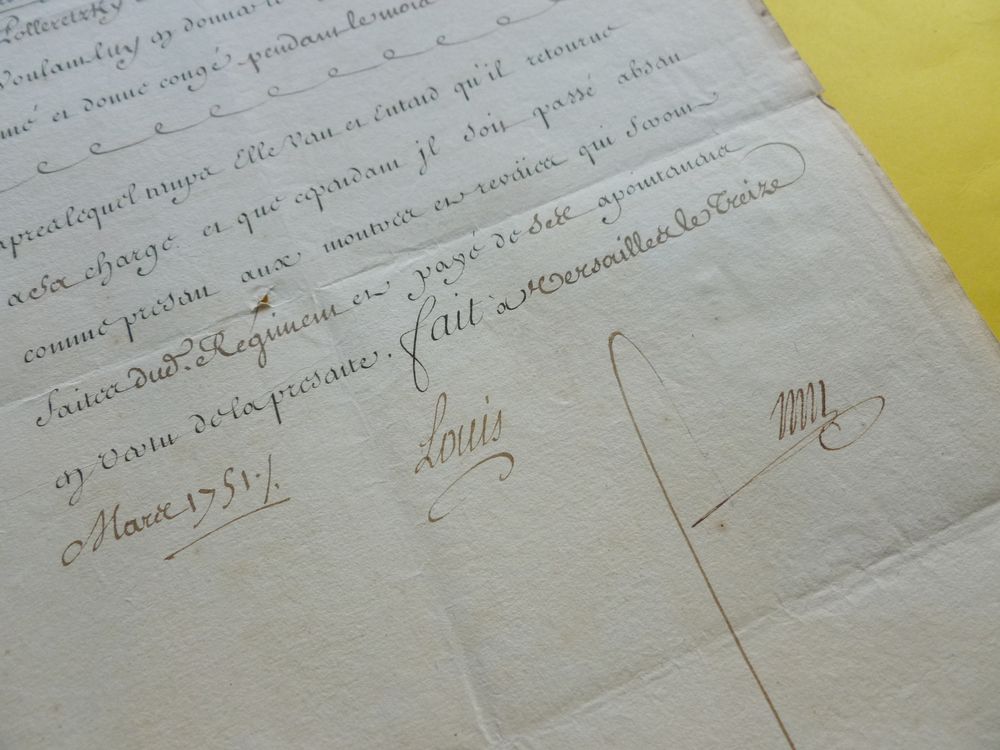 Polleretzky
voulant luy en donner le
mé et donne congé pendant le mois
apres lequel temps Elle Veut et Entend qu'il retourne
a Sa charge. et que cependant jl Soit passé absan
comme présan aux montres et reveües qui Seront
faites dud. Régiment et payé de Ses apointemens
en vertu de la presante. fait a Versailles le Treize
Mars 1751./.
Louis